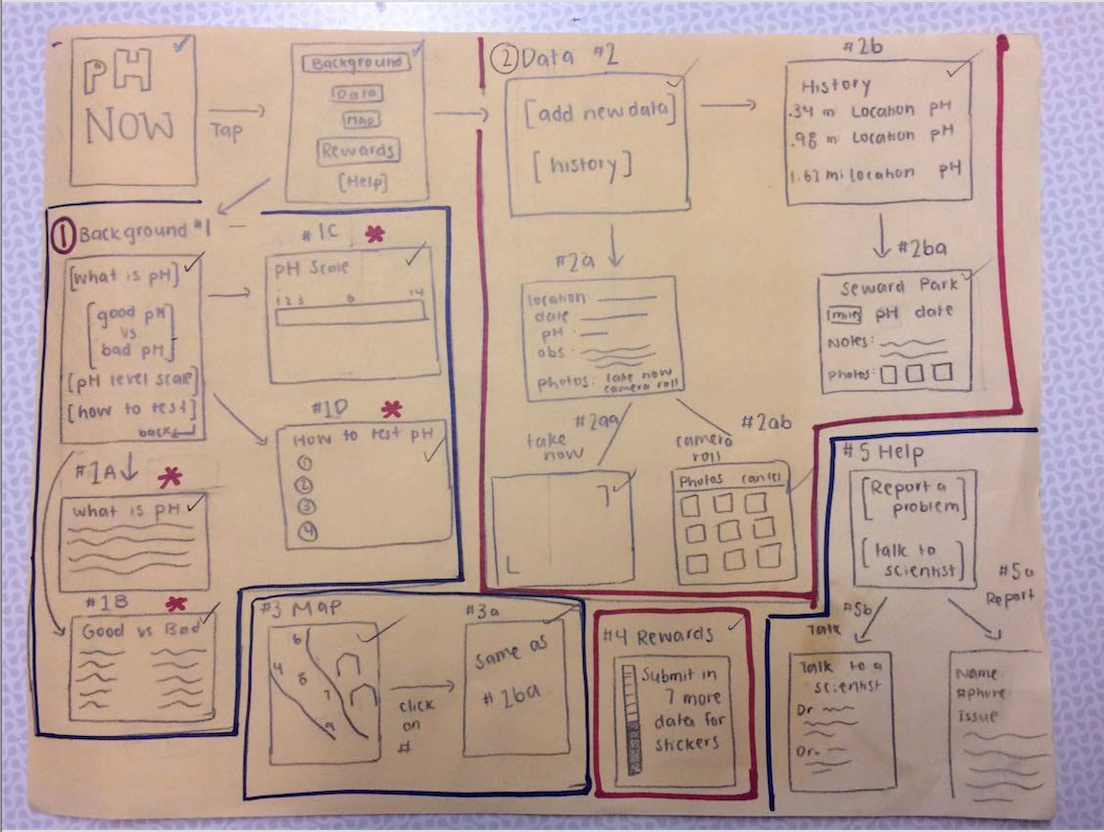 pH
NOW
Tap
Background
Data
Map
Rewards
[Help]
② Data #2
[add new data]
[history]
#2b
History
.34 m Location pH
.98 m Location pH
1.62 mi location pH
#2a
location:
date:
pH:
obs:
photos: take now
camera roll
#2ba
Seward Park
pH date
Notes:
Photos:
#2aa
take
now
#2ab
camera
roll
Photos cancel
① Background #1
[what is pH]
[good pH
vs.
bad pH]
[pH level scale]
[how to test]
back
#1C *
pH Scale
1 2 3 14
#1D *
How to test pH
①
②
③
④
#1A *
what is pH
#1B *
Good vs Bad
#3 Map
6
4
8
7
9
click
on
#
#3a
Same as
#2ba
#4 Rewards
Submit in
7 more
data for
stickers
#5 Help
[Report a
problem]
[talk to
scientist]
#5b
Talk
#5a
Report
Talk to a
scientist
Dr
Dr.
Name:
#phone:
Issue